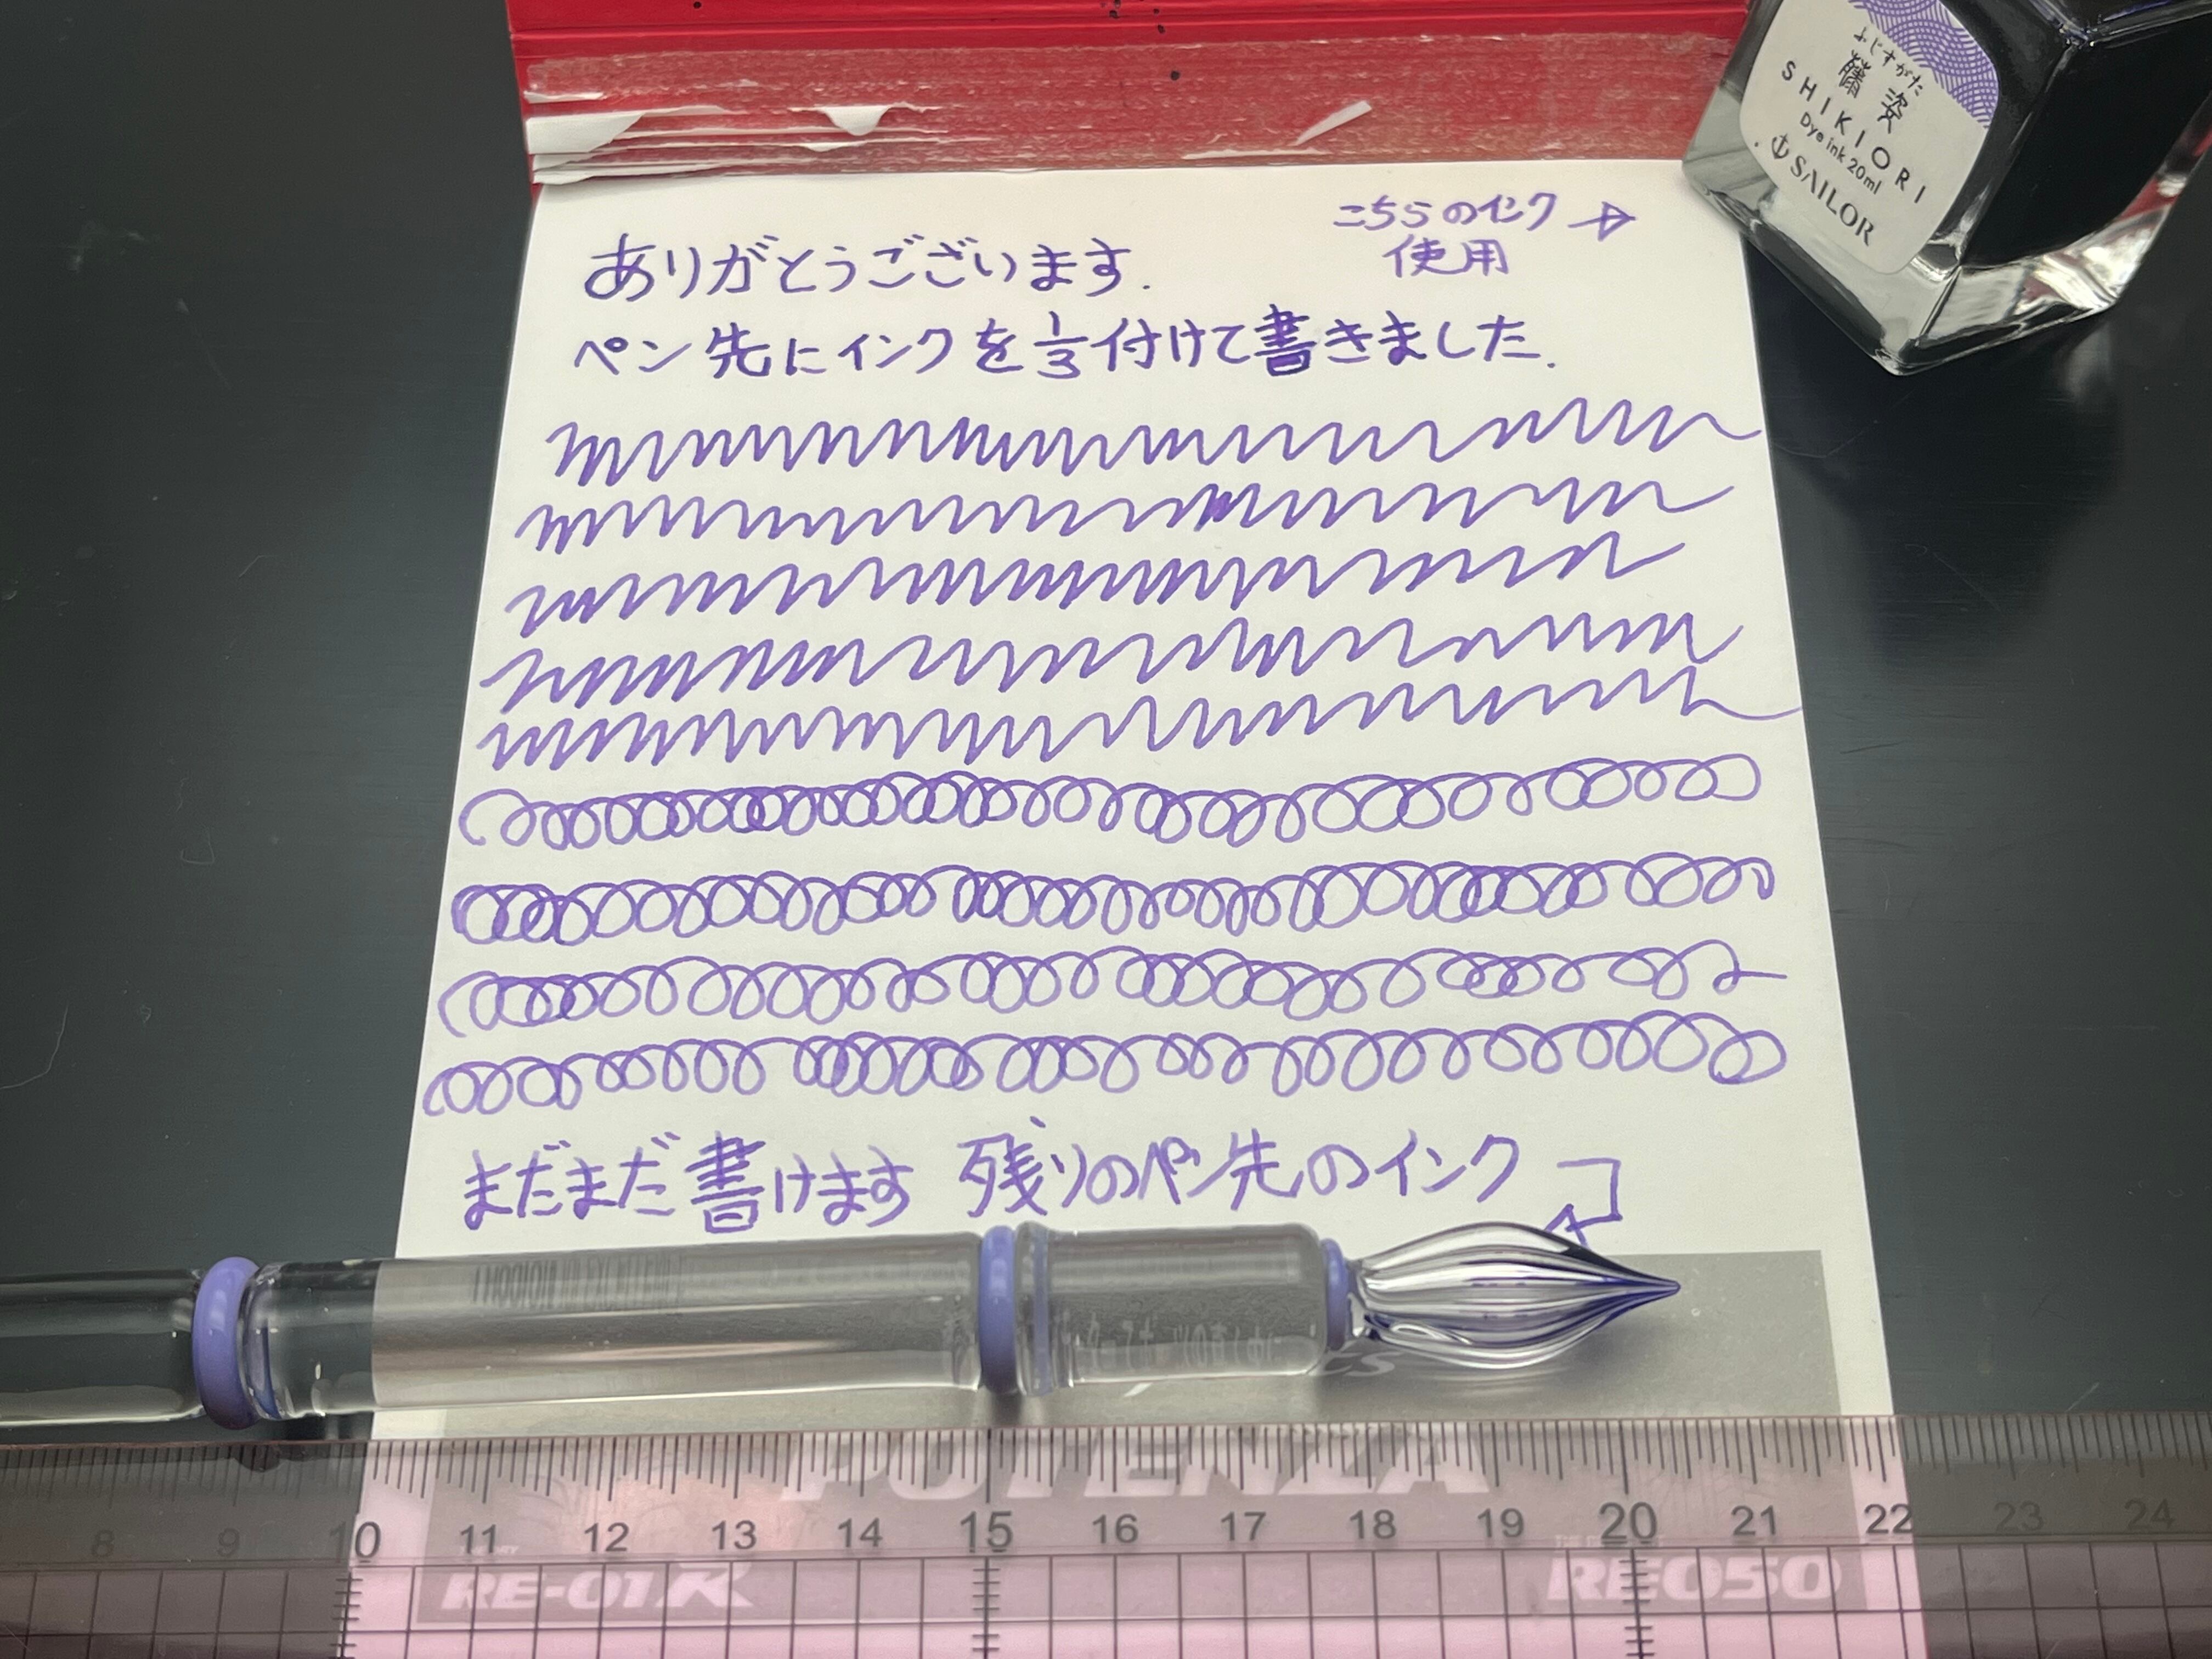 ふじすがた
藤姿
SHIKIORI
Dye ink 20ml
SAILOR
こちらのインク
使用
ありがとうございます.
ペン先にインクを1/3付けて書きました.
まだまだ書けます 残りのペン先のインク
POTENZA
8 9 10 11 12 13 14 15 16 17 18 19 20 21 22 23 24
RE-01R
RE050